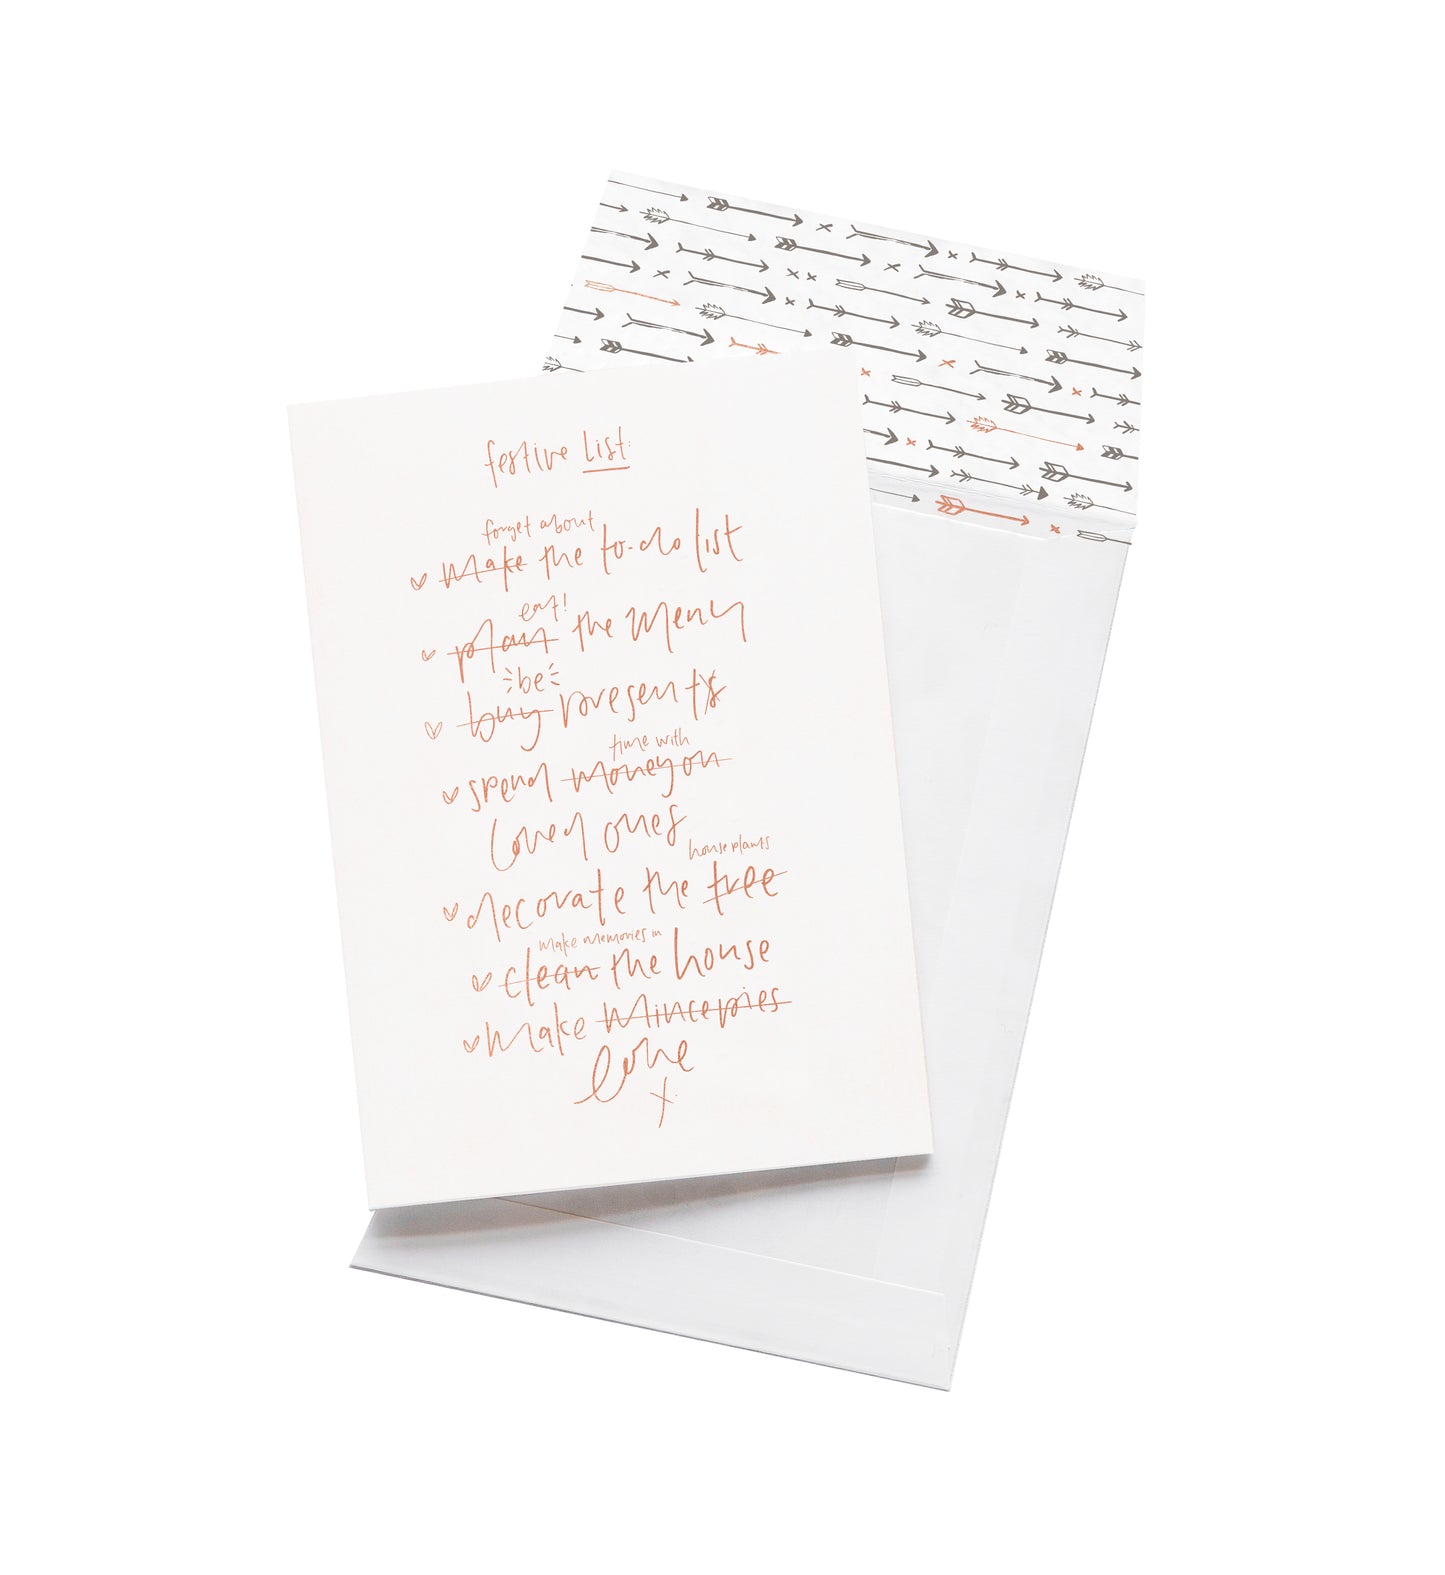 festive list:
forget about
make the to-do list
eat!
plan the menu
be
buy presents
time with
spend money on
loved ones
house plants
decorate the tree
make memories in
clean the house
make mince pies
love
x.